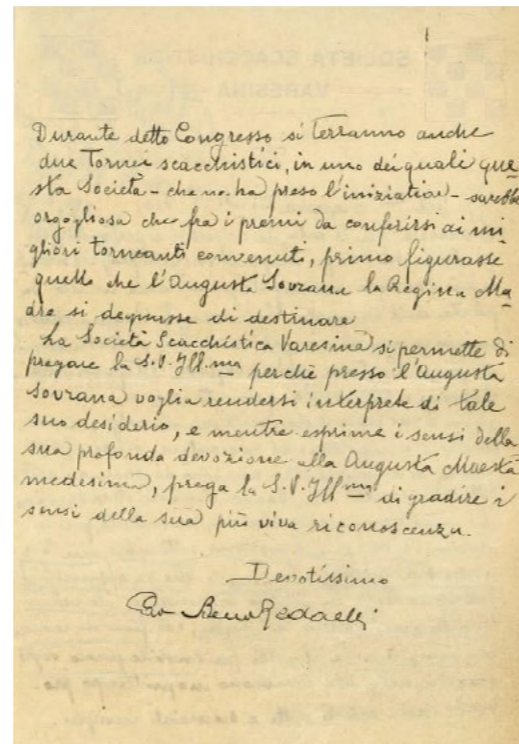 Durante detto Congresso si terranno anche
due Tornei scacchistici, in uno dei quali que
sta Società - che ne ha preso l'iniziativa - sarebbe
orgogliosa che fra i premi da conferirsi ai mi
gliori torneanti convenuti, primo figurasse
quello che l'Augusta Sovrana la Regina Ma
dre si degnasse di destinare
La Società Scacchistica Varesina si permette di
pregare la S.V. Ill.ma perchè presso l'Augusta
Sovrana voglia rendersi interprete di tale
suo desiderio, e mentre esprime i sensi della
sua profonda devozione alla Augusta Maestà
medesima, prega la S.V. Ill.ma di gradire i
sensi della sua più viva riconoscenza.
Devotissimo
Redaelli